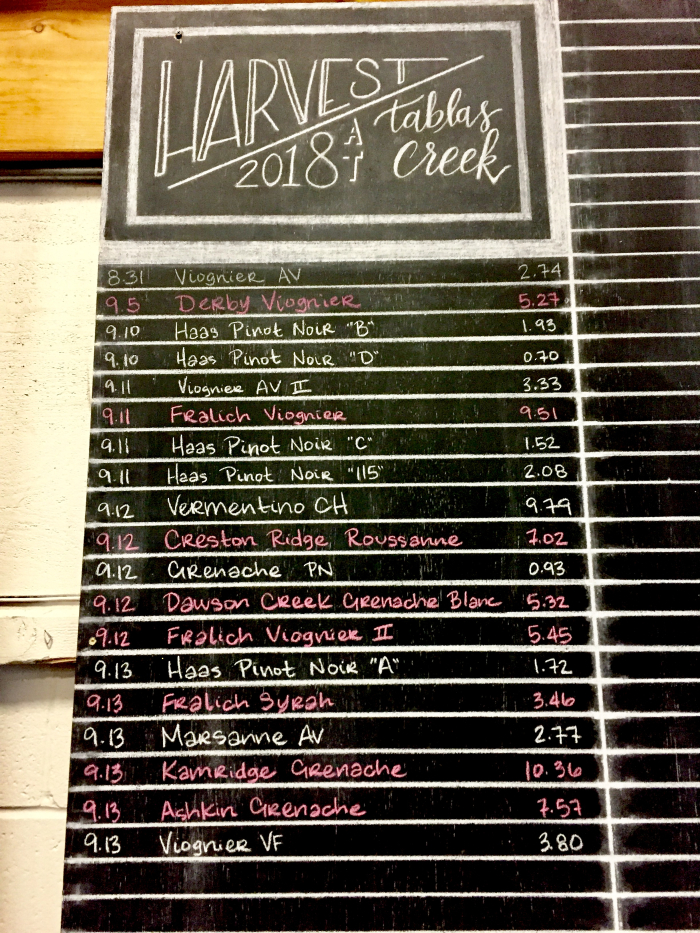 HARVEST
2018 AT tablas creek
8.31 Viognier AV 2.74
9.5 Derby Viognier 5.27
9.10 Haas Pinot Noir "B" 1.93
9.10 Haas Pinot Noir "D" 0.70
9.11 Viognier AV II 3.33
9.11 Fralich Viognier 9.51
9.11 Haas Pinot Noir "C" 1.52
9.11 Haas Pinot Noir "115" 2.08
9.12 Vermentino CH 9.79
9.12 Creston Ridge Roussanne 7.02
9.12 Grenache PN 0.93
9.12 Dawson Creek Grenache Blanc 5.32
9.12 Fralich Viognier II 5.45
9.13 Haas Pinot Noir "A" 1.72
9.13 Fralich Syrah 3.46
9.13 Marsanne AV 2.77
9.13 Kamridge Grenache 10.36
9.13 Ashkin Grenache 7.57
9.13 Viognier VF 3.80